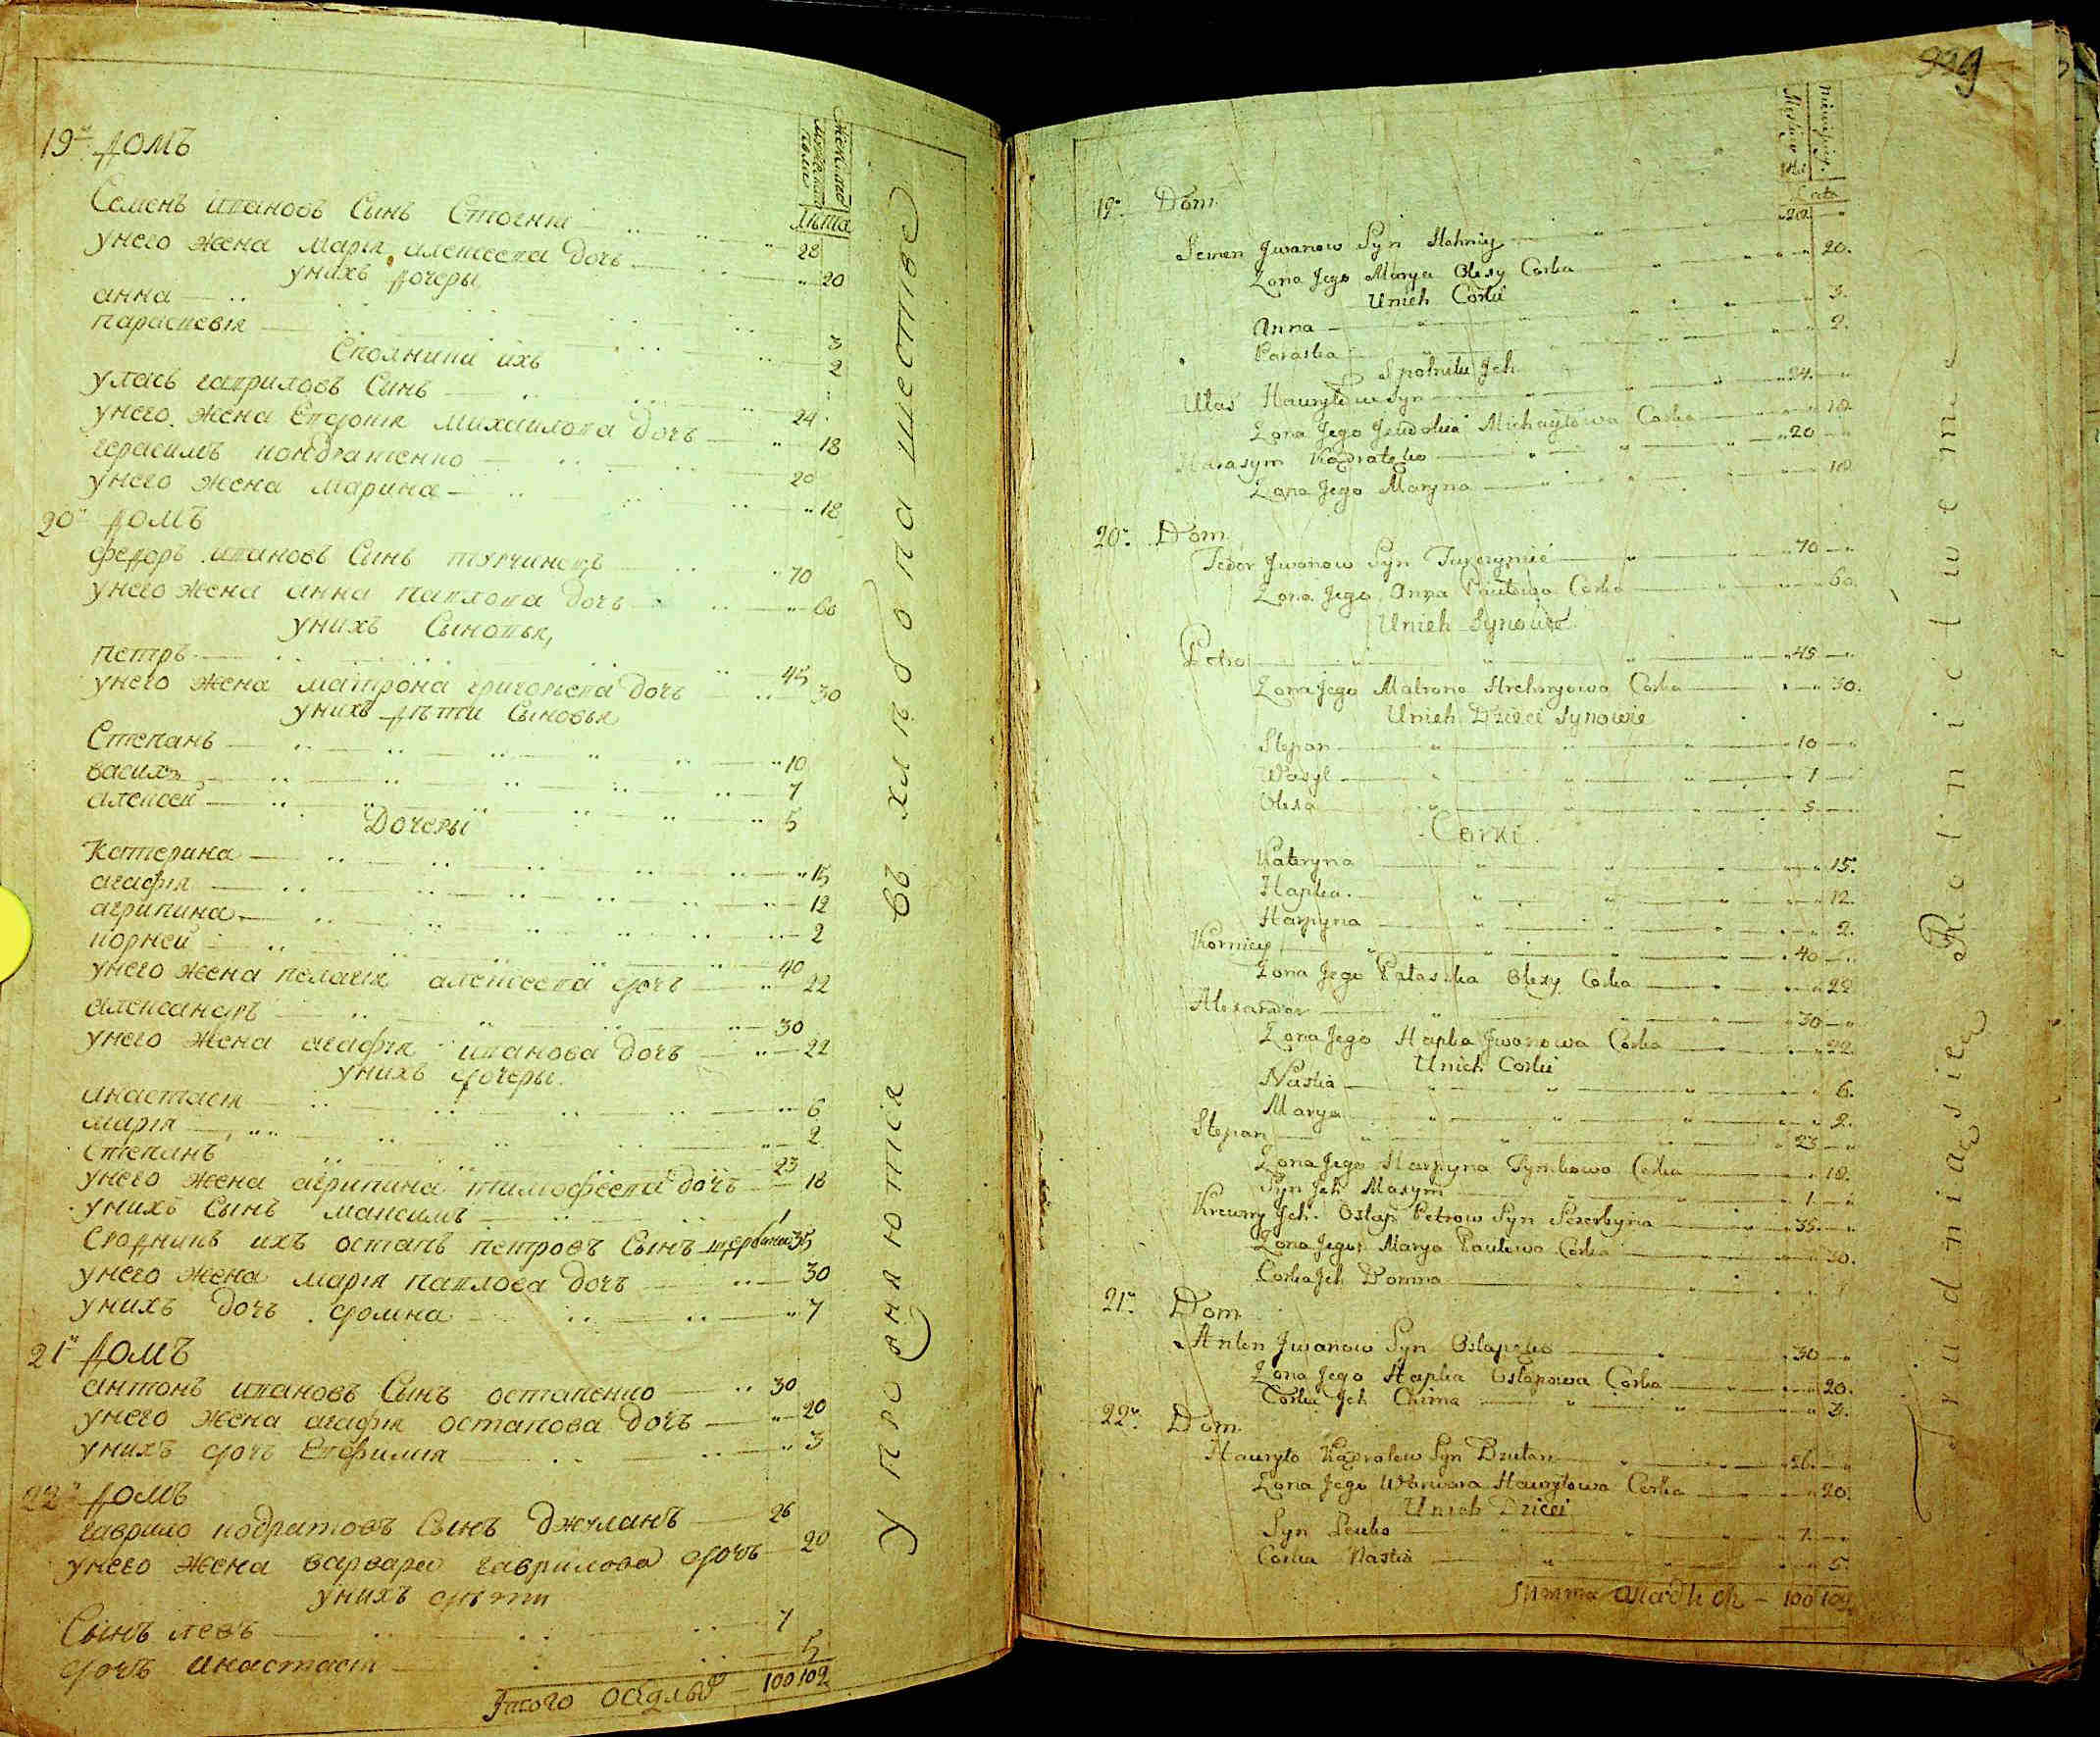 19й домъ
Женскаго
Мужескаго
полу
Лѣта
Семенъ ивановъ Сынъ Стогній 28
унего жена марія алексеева дочь 20
унихъ дочеры
анна 3
параскевія 2
Сполники ихъ
уласъ гавриловъ Сынъ 24
унего жена Евдокія михаилова дочь 18
герасимъ кондратенко 20
унего жена марина 18
20й домъ
федоръ ивановъ Сынъ турчинецъ 70
унего жена анна павлова дочь 60
унихъ Сыновья,
петръ 45
унего жена матрона григорьева дочь 30
унихъ дѣти Сыновья
Степанъ 10
василь 7
алексей 5
Дочеры
Катерина 15
агафія 12
агрипина 2
корней 40
унего жена пелагія алексеева дочь 22
александръ 30
унего жена агафія иванова дочь 22
унихъ дочеры.
анастасія 6
марія 2
степанъ 23
унего жена агрипина тимофеева дочь 18
унихъ Сынъ максимъ 1
Сродникъ ихъ остапъ петровъ Сынъ щербина 35
унего жена марія павлова дочь 30
унихъ дочь домна 7
21й домъ
антонъ ивановъ Сынъ остапенко 30
унего жена агафія остапова дочь 20
унихъ дочь Евфимія 3
22й домъ
гаврило кодратовъ Сынъ джуланъ 26
унего жена варвара гаврилова дочь 20
унихъ дѣти
Сынъ левъ 7
дочь анастасія 5
Итого 100 102
въ хлѣбопашествѣ
упроаняютія
339
Męskiey
Lata
19. Dom.
Semen Jwanow Syn Stohniy 28
Żona Jego Marya Olexy Corka 20.
Unich Corki
Anna 3.
Paraska 2.
Spolniki Jch
Ułas Hawryłow Syn 24.
Żona Jego Jewdokia Michayłowa Corka 18.
Harasym Kądratęko 20
Żona Jego Maryna 18
20. Dom.
Fedor Jwanow Syn Turczyniec 70
Żona Jego Anna Pawłowa Corka 60.
Unich Synowie
Petro 45
Żona Jego Matrona Hrehorjowa Corka 30.
Unich Dzieci Synowie
Stepan 10
Wasyl 7
Olexa 5
Corki.
Kateryna 15.
Hapka. 12.
Harpyna 2.
Korniey 40
Żona Jego Palaszka Olexy Corka 22
Alexander 30
Żona Jego Hapka Jwanowa Corka 22.
Unich Corki
Nastia 6.
Marya 2.
Stepan 23
Żona Jego Harpyna Tymkowa Corka 18.
Syn Jch Maxym 1
Krewny Jch. Ostap Petrow Syn Szczerbyna 35
Żona Jego Marya Pawłowa Corka 30.
Corka Jch Domna 7
21. Dom
Anton Jwanow Syn Ostapęko 30
Żona Jego Hapka Ostapowa Corka 20.
Corka Jch Chima 3.
22. Dom.
Hawryło Kądratow Syn Dzulan 26
Żona Jego Warwara Hawryłowa Corka 20.
Unich Dzieci
Syn Lewko 7
Corka Nastia 5.
Summa 100 102
Rolnictwem
trudniąsię